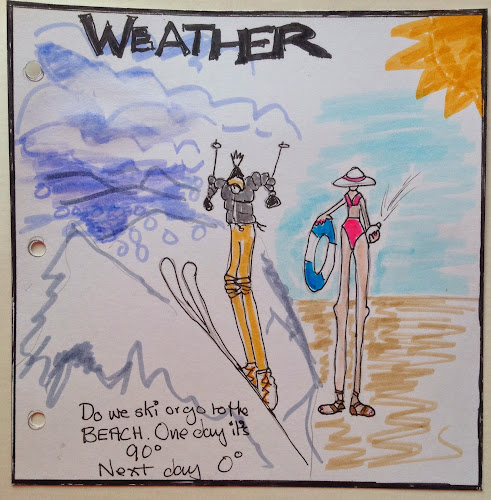 WEATHER
Do we ski or go to the
BEACH. One day it's
90°
Next day 0°